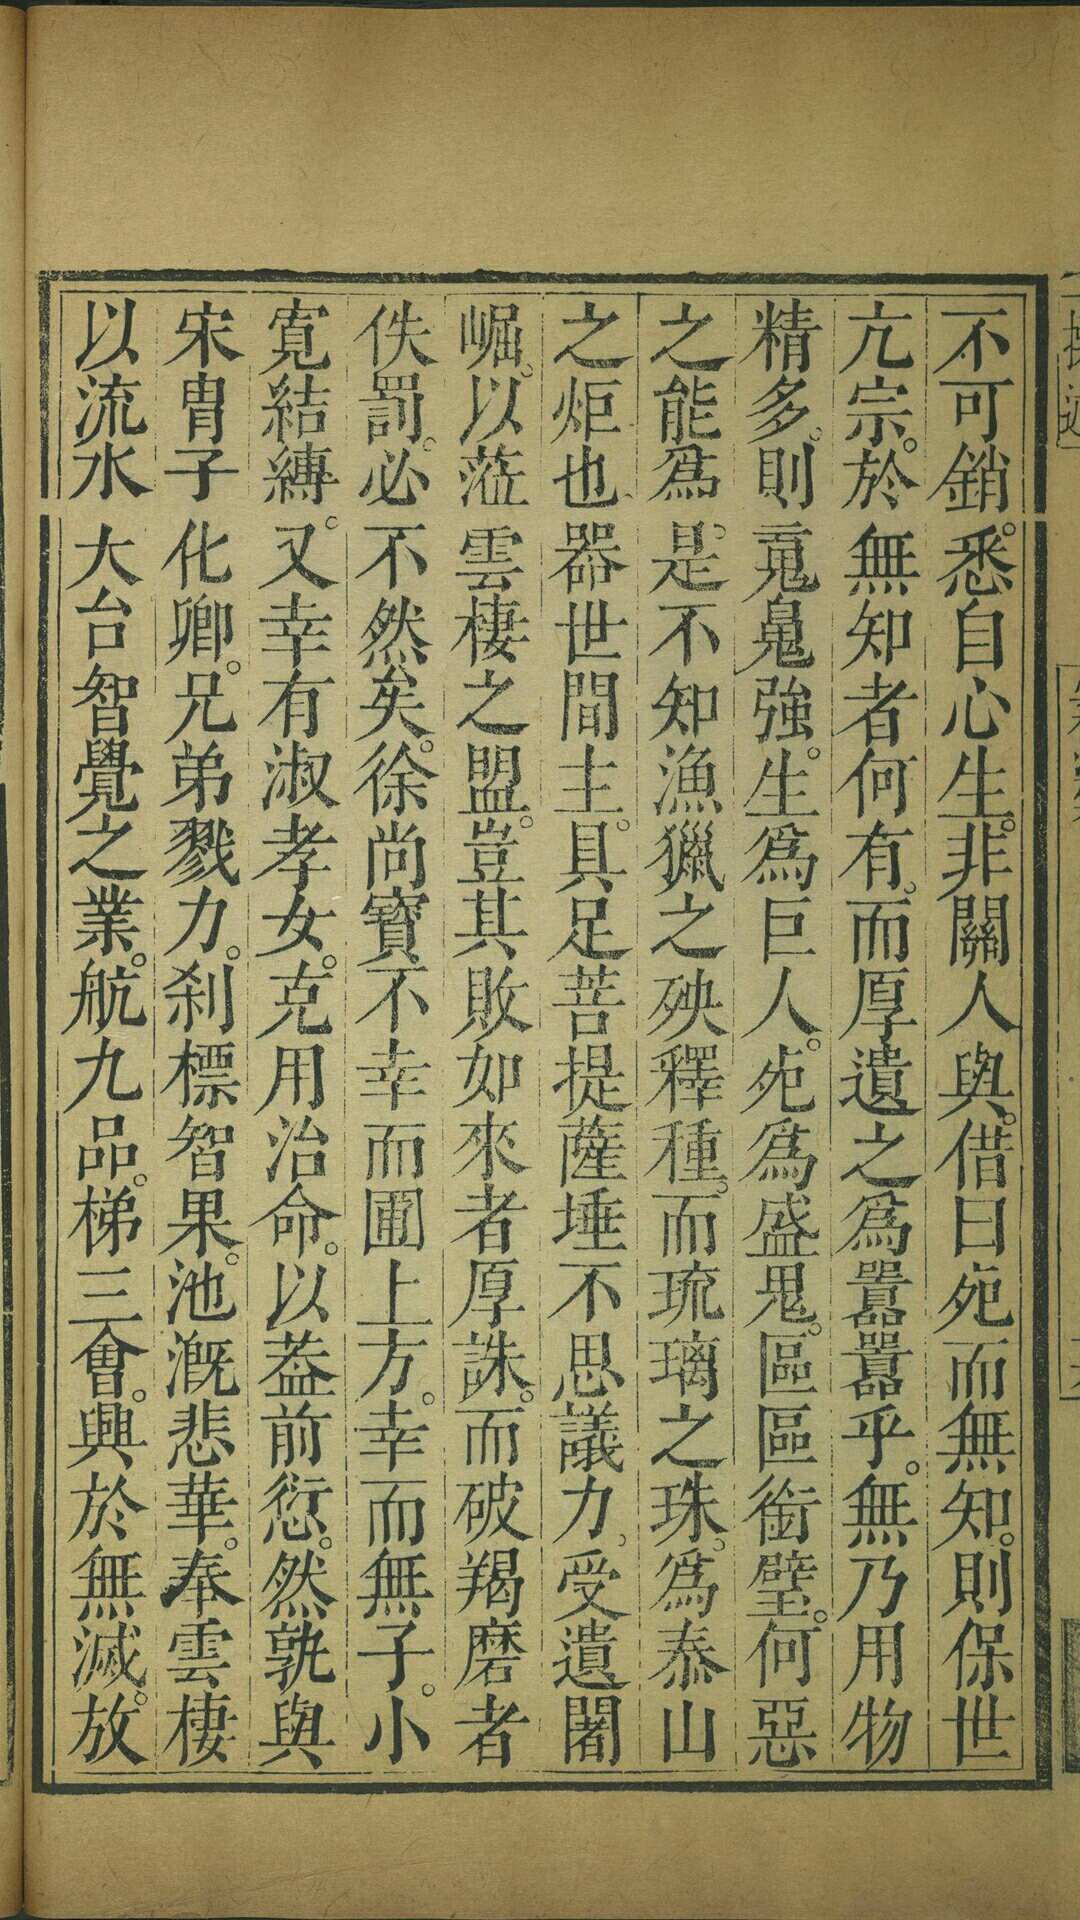 不可銷。悉自心生。非關人與。借曰死而無知。則保世
亢宗。於無知者何有。而厚遺之為囂囂乎。無乃用物
精多。則䰟鬼強。生為巨人。死為盛鬼。區區銜璧。何惡
之能為。是不知漁獵之殃釋種。而琉璃之珠。為泰山
之炬也。器世間主。具足菩提薩埵不思議力。受遺闍
崛。以蒞雲棲之盟。豈其敗如來者厚誅。而破羯磨者
佚罰。必不然矣。徐尚寶不幸而圃上方。幸而無子。小
寬結縛。又幸有淑孝女。克用治命。以葢前愆。然孰與
宋冑子化卿。兄弟戮力。刹標智果。池漑悲華。奉雲棲
以流水大台智覺之業。航九品。梯三會。興於無滅。放